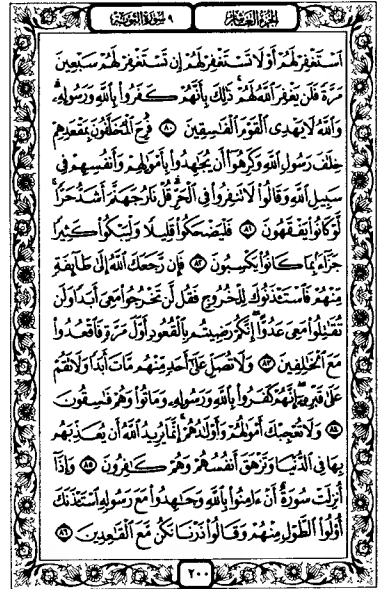 الجزء العاشر
٩ سورة التوبة
ٱسْتَغْفِرْ لَهُمْ أَوْ لَا تَسْتَغْفِرْ لَهُمْ إِن تَسْتَغْفِرْ لَهُمْ سَبْعِينَ
مَرَّةً فَلَن يَغْفِرَ ٱللَّهُ لَهُمْ ذَٰلِكَ بِأَنَّهُمْ كَفَرُوا۟ بِٱللَّهِ وَرَسُولِهِۦ
وَٱللَّهُ لَا يَهْدِى ٱلْقَوْمَ ٱلْفَـٰسِقِينَ ٨٠ فَرِحَ ٱلْمُخَلَّفُونَ بِمَقْعَدِهِمْ
خِلَـٰفَ رَسُولِ ٱللَّهِ وَكَرِهُوٓا۟ أَن يُجَـٰهِدُوا۟ بِأَمْوَٰلِهِمْ وَأَنفُسِهِمْ فِى
سَبِيلِ ٱللَّهِ وَقَالُوا۟ لَا تَنفِرُوا۟ فِى ٱلْحَرِّ قُلْ نَارُ جَهَنَّمَ أَشَدُّ حَرًّا
لَّوْ كَانُوا۟ يَفْقَهُونَ ٨١ فَلْيَضْحَكُوا۟ قَلِيلًا وَلْيَبْكُوا۟ كَثِيرًا
جَزَآءًۢ بِمَا كَانُوا۟ يَكْسِبُونَ ٨٢ فَإِن رَّجَعَكَ ٱللَّهُ إِلَىٰ طَآئِفَةٍ
مِّنْهُمْ فَٱسْتَـْٔذَنُوكَ لِلْخُرُوجِ فَقُل لَّن تَخْرُجُوا۟ مَعِىَ أَبَدًا وَلَن
تُقَـٰتِلُوا۟ مَعِىَ عَدُوًّا إِنَّكُمْ رَضِيتُم بِٱلْقُعُودِ أَوَّلَ مَرَّةٍ فَٱقْعُدُوا۟
مَعَ ٱلْخَـٰلِفِينَ ٨٣ وَلَا تُصَلِّ عَلَىٰٓ أَحَدٍ مِّنْهُم مَّاتَ أَبَدًا وَلَا تَقُمْ
عَلَىٰ قَبْرِهِۦٓ إِنَّهُمْ كَفَرُوا۟ بِٱللَّهِ وَرَسُولِهِۦ وَمَاتُوا۟ وَهُمْ فَـٰسِقُونَ
٨٤ وَلَا تُعْجِبْكَ أَمْوَٰلُهُمْ وَأَوْلَـٰدُهُمْ إِنَّمَا يُرِيدُ ٱللَّهُ أَن يُعَذِّبَهُم
بِهَا فِى ٱلدُّنْيَا وَتَزْهَقَ أَنفُسُهُمْ وَهُمْ كَـٰفِرُونَ ٨٥ وَإِذَآ
أُنزِلَتْ سُورَةٌ أَنْ ءَامِنُوا۟ بِٱللَّهِ وَجَـٰهِدُوا۟ مَعَ رَسُولِهِ ٱسْتَـْٔذَنَكَ
أُو۟لُوا۟ ٱلطَّوْلِ مِنْهُمْ وَقَالُوا۟ ذَرْنَا نَكُن مَّعَ ٱلْقَـٰعِدِينَ ٨٦
٢٠٠